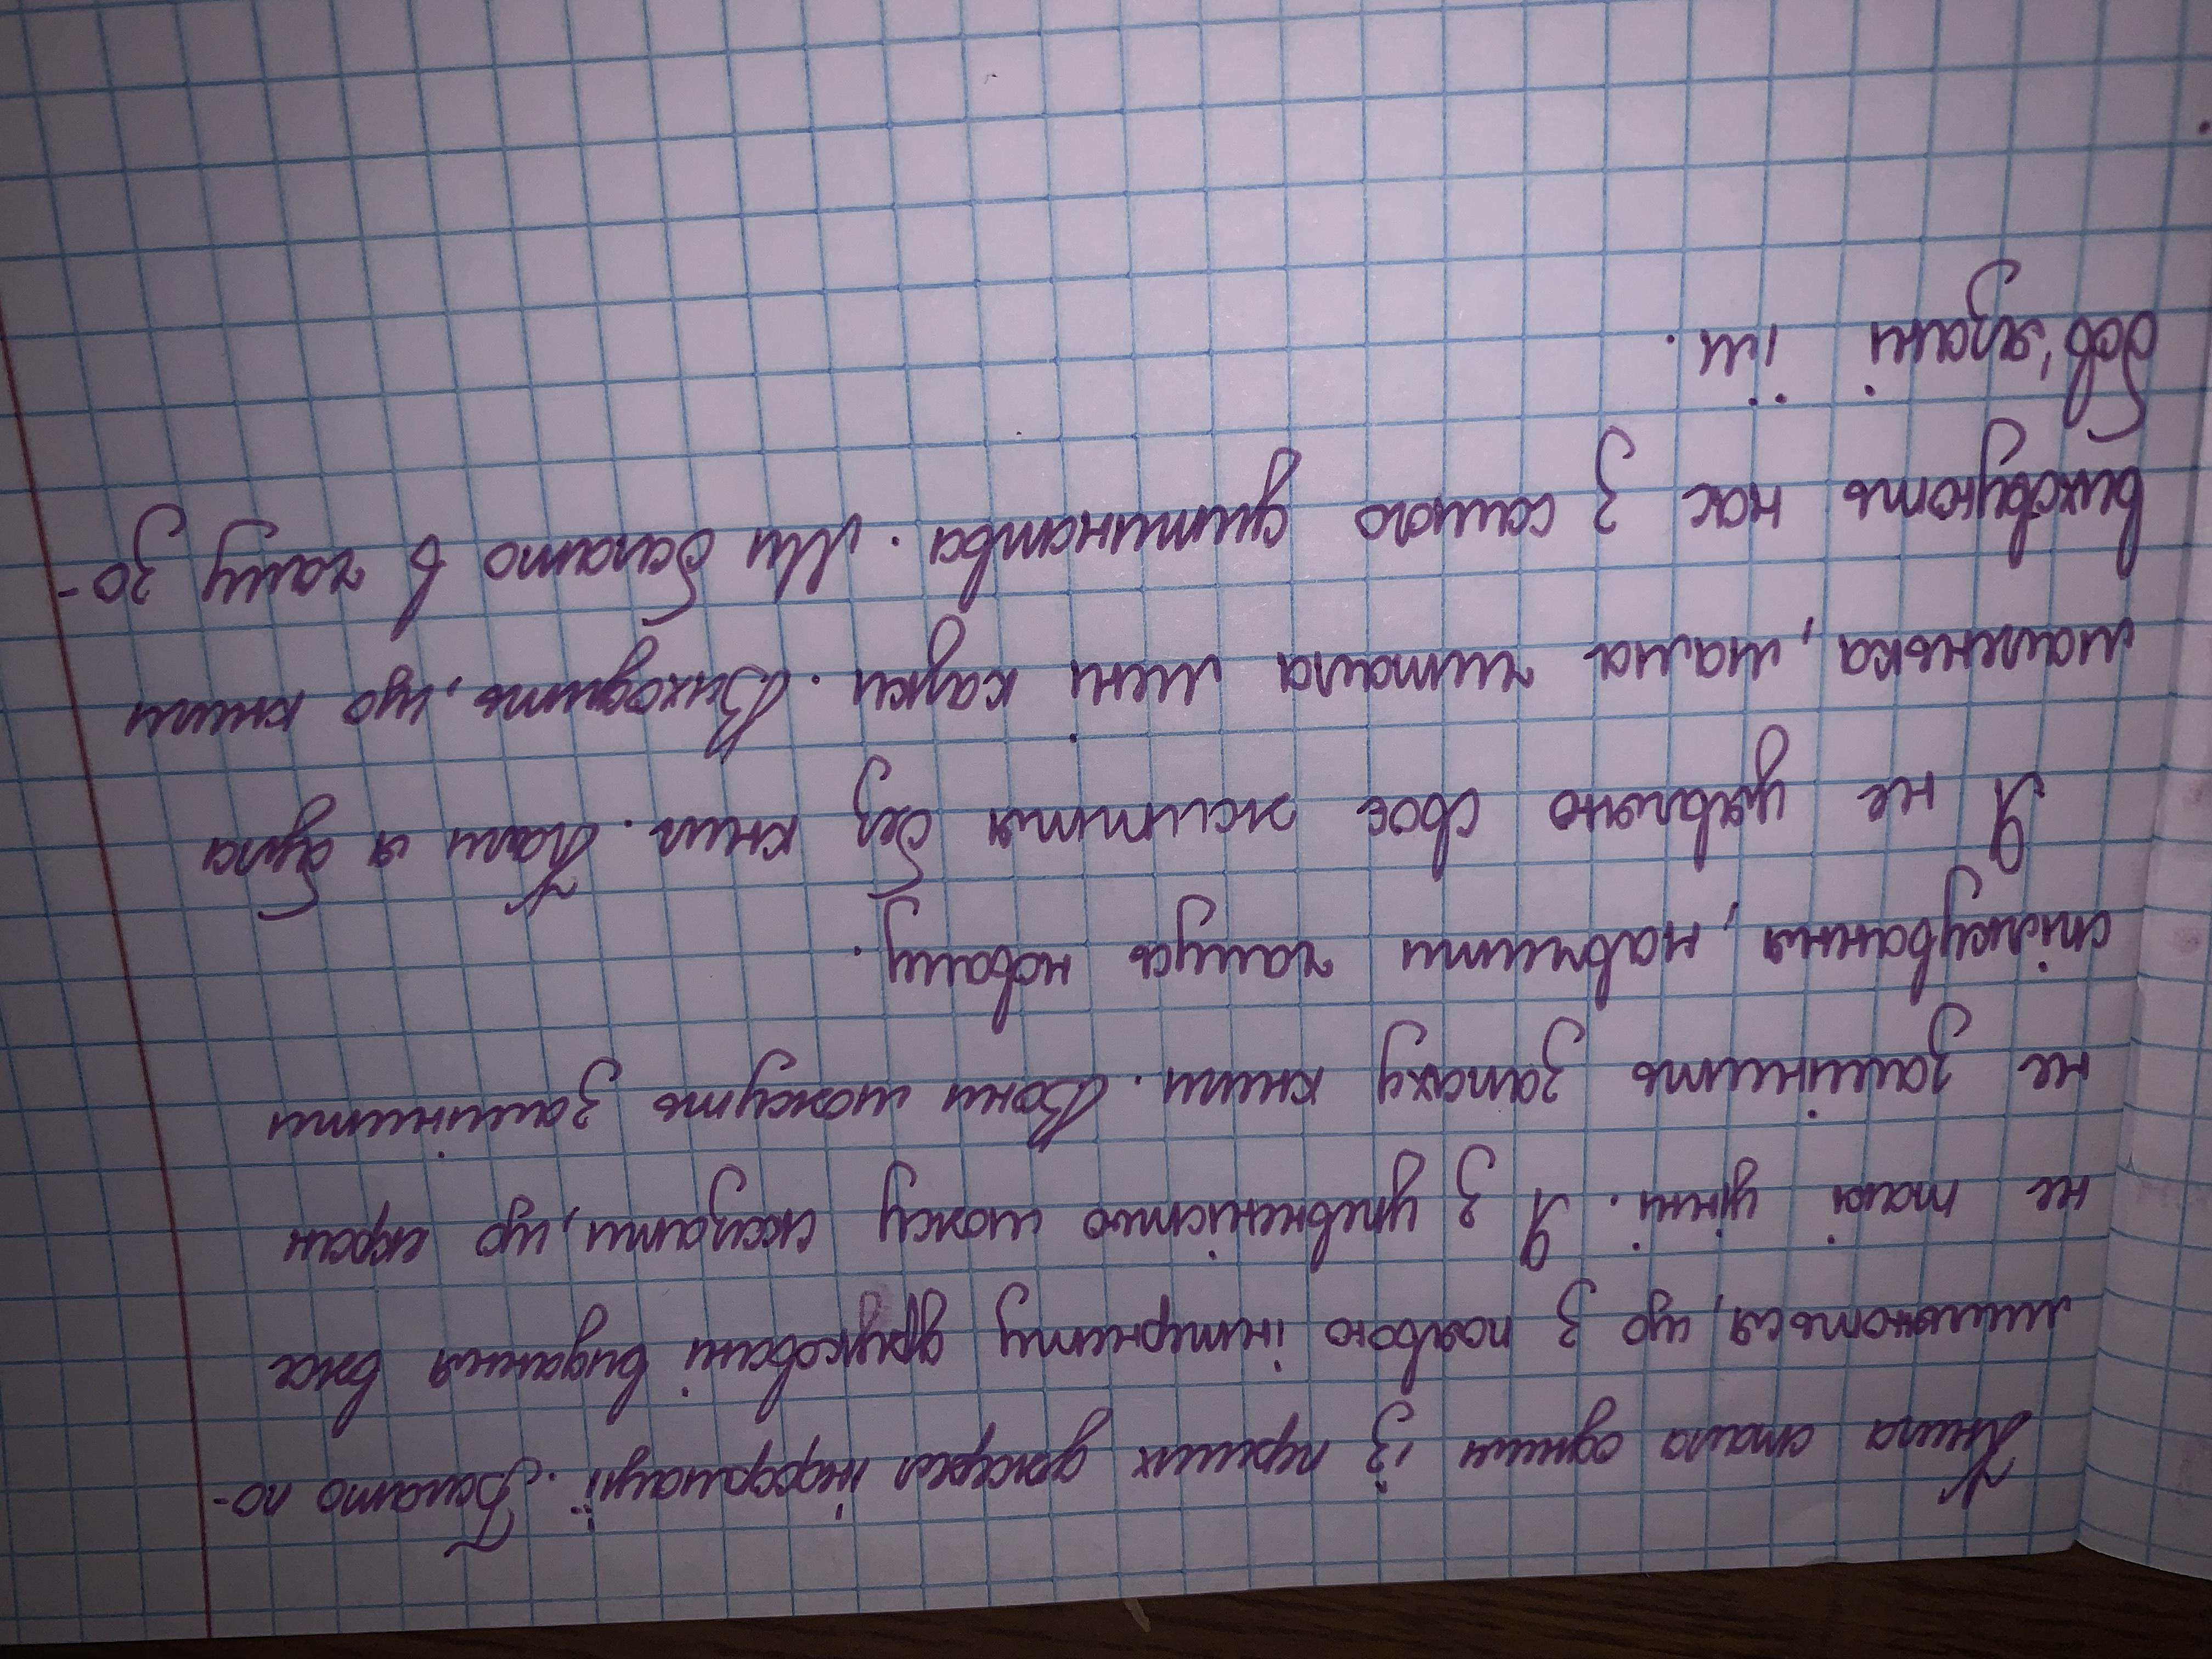 Книга стала одним із перших джерел інформації. Багато по-
миляються, що з появою інтернету друковані видання вже
не такі цінні. Я з упевненістю можу сказати, що екран
не замінить запаху книги. Вони можуть замінити
спілкування, навчити чомусь новому.
Я не уявляю своє життя без книг. Коли я була
маленька, мама читала мені казки. Виходить, що книги
виховують нас з самого дитинства. Ми багато в чому зо-
бов'язані їм.